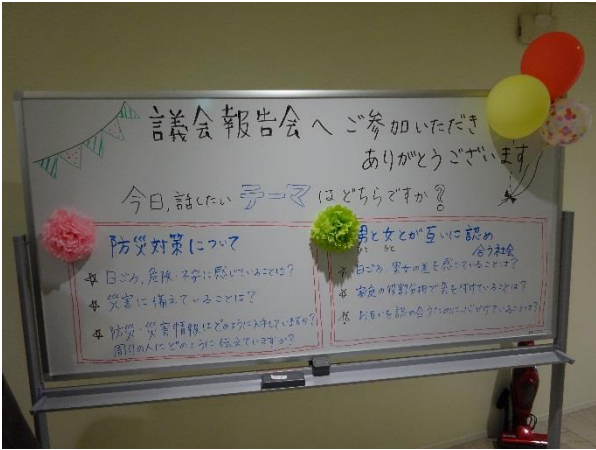 議会報告会へご参加いただき
ありがとうございます
今日、話したいテーマはどちらですか?
防災対策について
☆日ごろ、危険・不安に感じていることは?
☆災害に備えていることは?
☆防災・災害情報はどのように入手していますか?
周りの人にどのように伝えていますか?
男と女とが互いに認め
ひと ひと
合う社会
☆日ごろ、男女の差を感じていることは?
☆家庭の役割分担で気を付けていることは?
☆お互いを認め合うために心がけていることは?